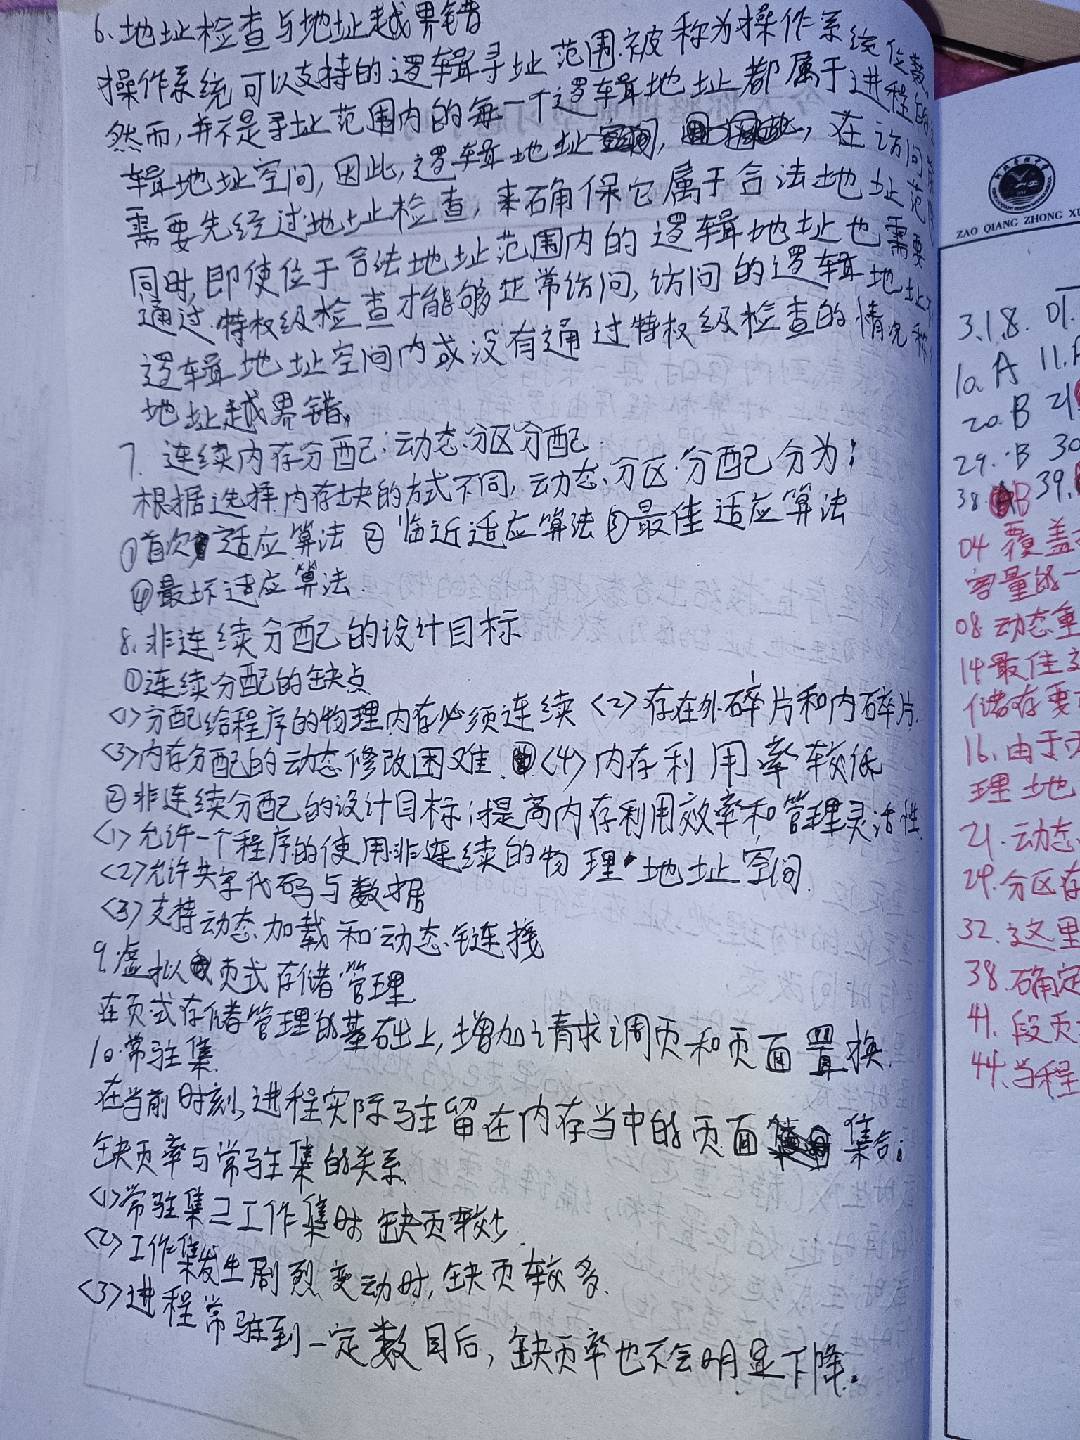 6.地址检查与地址越界错
操作系统可以支持的逻辑寻址范围被称为操作系统位数
然而,并不是寻址范围内的每一个逻辑地址都属于进程的
辑地址空间,因此,逻辑地址,在访问
需要先经过地址检查,来确保它属于合法地址范
同时,即使位于合法地址范围内的逻辑地址也需要
通过特权级检查才能够正常访问,访问的逻辑地址
逻辑地址空间内或没有通过特权级检查的情况称
地址越界错。
7.连续内存分配:动态分区分配
根据选择内存块的方式不同,动态分区分配分为:
①首次适应算法 ②临近适应算法 ③最佳适应算法
④最坏适应算法
8.非连续分配的设计目标
①连续分配的缺点
<1>分配给程序的物理内存必须连续 <2>存在外碎片和内碎片.
<3>内存分配的动态修改困难. <4>内存利用率较低
②非连续分配的设计目标:提高内存利用效率和管理灵活性.
<1>允许一个程序的使用非连续的物理地址空间.
<2>允许共享代码与数据
<3>支持动态加载和动态链接
9.虚拟页式存储管理
在页式存储管理的基础上,增加请求调页和页面置换.
10.常驻集
在当前时刻,进程实际驻留在内存当中的页面集合;
缺页率与常驻集的关系
<1>常驻集⊇工作集时,缺页较少.
<2>工作集发生剧烈变动时,缺页较多.
<3>进程常驻到一定数目后,缺页率也不会明显下降.
ZAO QIANG ZHONG XU
3.1.8. 01
10. A 11.
20. B 21
29. B 30
38 B 39.
04 覆盖
容量的一
08 动态重
14 最佳
储存要
16.由于
理地
21.动态
29.分区存
32.这里
38.确定
41.段页
44.当程